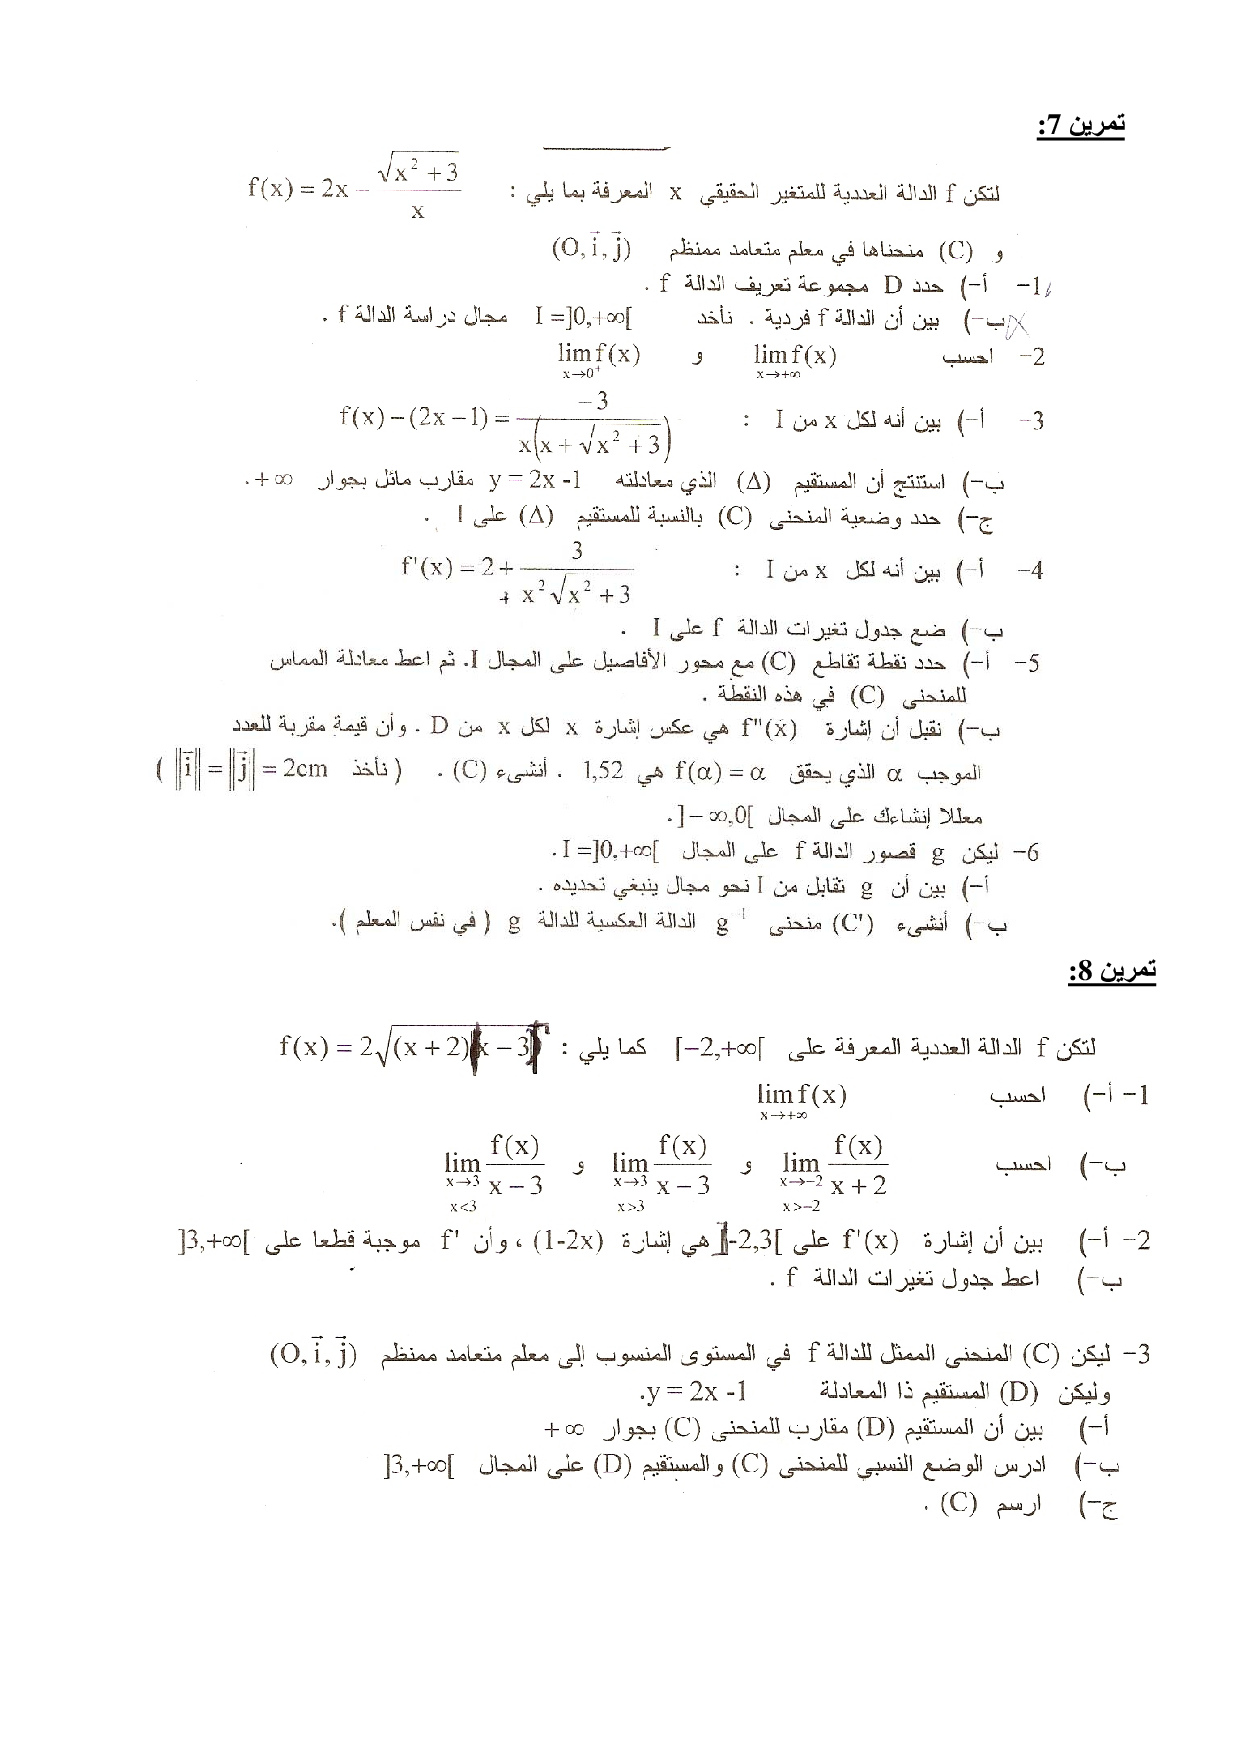 تمرين 7:
لتكن f الدالة العددية للمتغير الحقيقي x المعرفة بما يلي : f(x) = 2x − √(x² + 3) / x
و (C) منحناها في معلم متعامد ممنظم (O, i⃗, j⃗)
1- أ-) حدد D مجموعة تعريف الدالة f .
ب-) بين أن الدالة f فردية . نأخد I =]0,+∞[ مجال دراسة الدالة f .
2- احسب lim f(x) x→+∞ و lim f(x) x→0⁺
3- أ-) بين أنه لكل x من I : f(x) − (2x − 1) = −3 / x(x + √(x² + 3))
ب-) استنتج أن المستقيم (Δ) الذي معادلته y = 2x -1 مقارب مائل بجوار +∞.
ج-) حدد وضعية المنحنى (C) بالنسبة للمستقيم (Δ) على I .
4- أ-) بين أنه لكل x من I : f'(x) = 2 + 3 / x²√(x² + 3)
ب-) ضع جدول تغيرات الدالة f على I .
5- أ-) حدد نقطة تقاطع (C) مع محور الأفاصيل على المجال I. ثم اعط معادلة المماس
للمنحنى (C) في هذه النقطة .
ب-) نقبل أن إشارة f"(x) هي عكس إشارة x لكل x من D . وأن قيمة مقربة للعدد
الموجب α الذي يحقق f(α) = α هي 1,52 . أنشىء (C) . ( نأخذ ‖i⃗‖ = ‖j⃗‖ = 2cm )
معللا إنشاءك على المجال ]−∞,0[.
6- ليكن g قصور الدالة f على المجال I =]0,+∞[.
أ-) بين أن g تقابل من I نحو مجال ينبغي تحديده .
ب-) أنشىء (C') منحنى g⁻¹ الدالة العكسية للدالة g ( في نفس المعلم ).
تمرين 8:
لتكن f الدالة العددية المعرفة على [−2,+∞[ كما يلي : f(x) = 2√((x + 2)|x − 3|)
1- أ-) احسب lim f(x) x→+∞
ب-) احسب lim f(x) / x + 2 x→−2 x>−2 و lim f(x) / x − 3 x→3 x>3 و lim f(x) / x − 3 x→3 x<3
2- أ-) بين أن إشارة f'(x) على ]-2,3[ هي إشارة (1-2x) ، وأن f' موجبة قطعا على ]3,+∞[
ب-) اعط جدول تغيرات الدالة f .
3- ليكن (C) المنحنى الممثل للدالة f في المستوى المنسوب إلى معلم متعامد ممنظم (O, i⃗, j⃗)
وليكن (D) المستقيم ذا المعادلة y = 2x -1.
أ-) بين أن المستقيم (D) مقارب للمنحنى (C) بجوار +∞
ب-) ادرس الوضع النسبي للمنحنى (C) والمستقيم (D) على المجال ]3,+∞[
ج-) ارسم (C) .